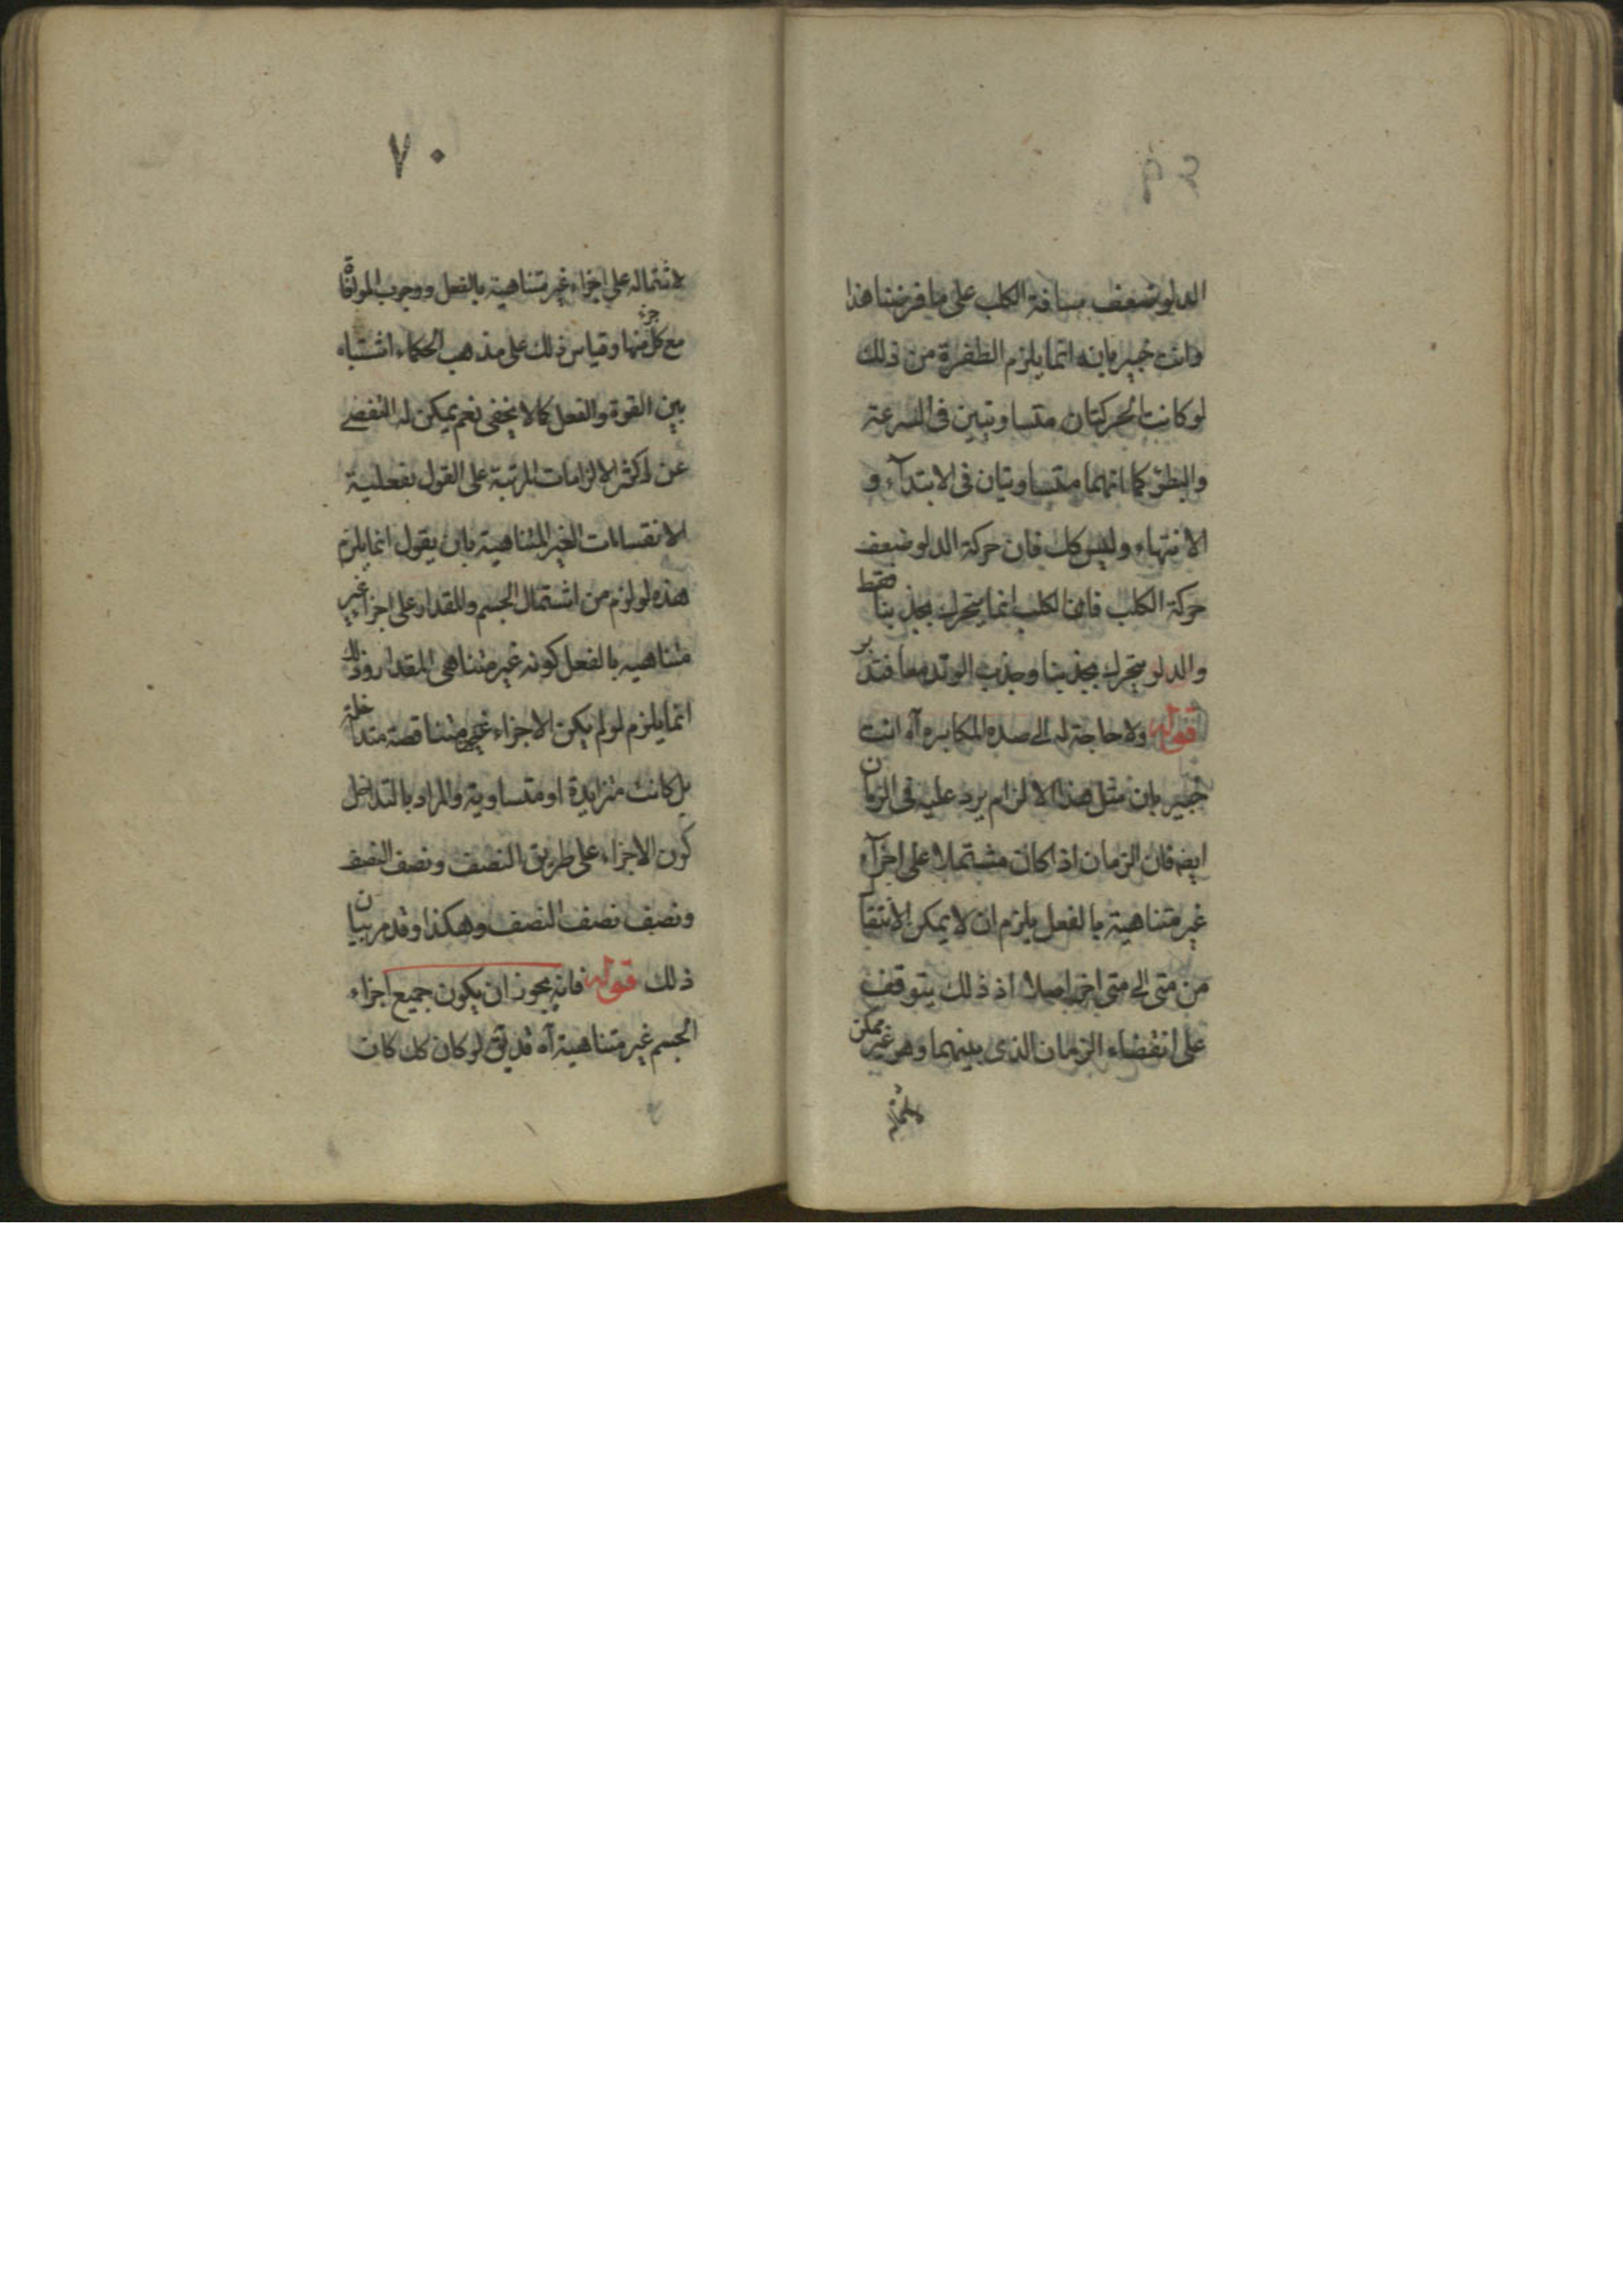 الدلو ضعف مسافة الكلب على ما فرضنا هذا
وانت خبير بانه انما يلزم الطفرة من ذلك
لو كانت الحركتان متساويتين فى السرعة
والبطؤ كما انهما متساويتان فى الابتدآء و
الانتهاء وليس كك فان حركة الدلو ضعف
حركة الكلب فان الكلب انما يتحرك بجذبنا فقط
والدلو يتحرك بجذبنا وجذب الوتد معا فتدبر
قوله ولا حاجة له الى هذه المكابره آه انت
خبير بان مثل هذا الالزام يرد عليه فى الزمان
ايضا فان الزمان اذا كان مشتملا على اجزآء
غير متناهية بالفعل يلزم ان لا يمكن الانتقال
من متى الى متى اخر اصلا اذ ذلك يتوقف
على انقضاء الزمان الذى بينهما وهو غير ممكن
٧٠
لاشتماله على اجزاء غير متناهية بالفعل ووجوب الموافاة
مع كل جزء منها وقياس ذلك على مذهب الحكماء اشتباه
بين القوة والفعل كما لا يخفى نعم يمكن له التفصى
عن اكثر الالزامات المرتبة على القول بفعلية
الانقسامات الغير المتناهية بان يقول انما يلزم
هذه لو لزم من اشتمال الجسم والمقدار على اجزاء غير
متناهيه بالفعل كونه غير متناهى المقدار وذلك
انما يلزم لو لم يكن الاجزاء غير متناقصة متداخلة
بل كانت متزايدة او متساوية والمراد بالتداخل
كون الاجزاء على طريق النصف ونصف النصف
ونصف نصف النصف وهكذا وقد مر بيان
ذلك قوله فانه يجوز ان يكون جميع اجزاء
الجسم غير متناهية آه قد يق لو كان كك كان